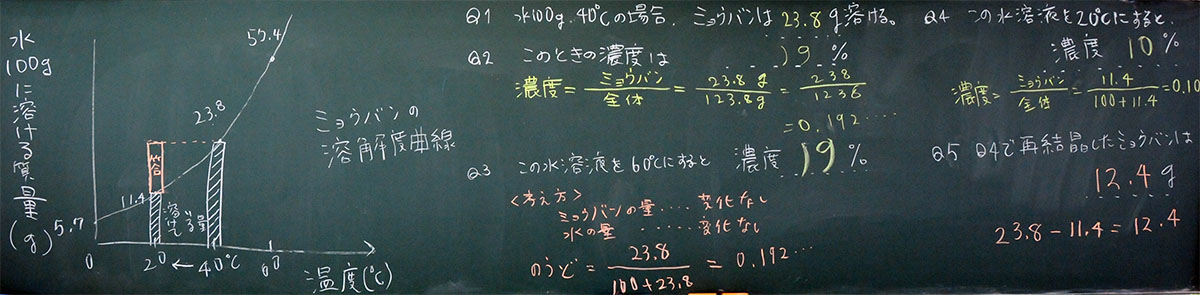 水100gに溶ける質量(g)
57.4
23.8
11.4
5.7
答
溶けてる量
0 20 ← 40℃ 60
温度(℃)
ミョウバンの
溶解度曲線
Q1 水100g、40℃の場合、ミョウバンは23.8g溶ける。
Q2 このときの濃度は 19%
濃度=ミョウバン/全体=23.8g/123.8g=238/1238
=0.192……
Q3 この水溶液を60℃にすると 濃度19%
<考え方>
ミョウバンの量……変化なし
水の量……変化なし
のうど=23.8/100+23.8=0.192…
Q4 この水溶液を20℃にすると、
濃度 10%
濃度=ミョウバン/全体=11.4/100+11.4=0.10
Q5 Q4で再結晶したミョウバンは
12.4g
23.8-11.4=12.4